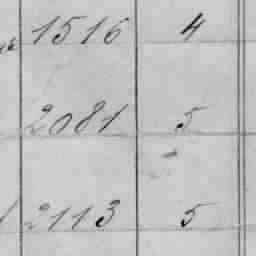 1516 4
2081 5
2113 5